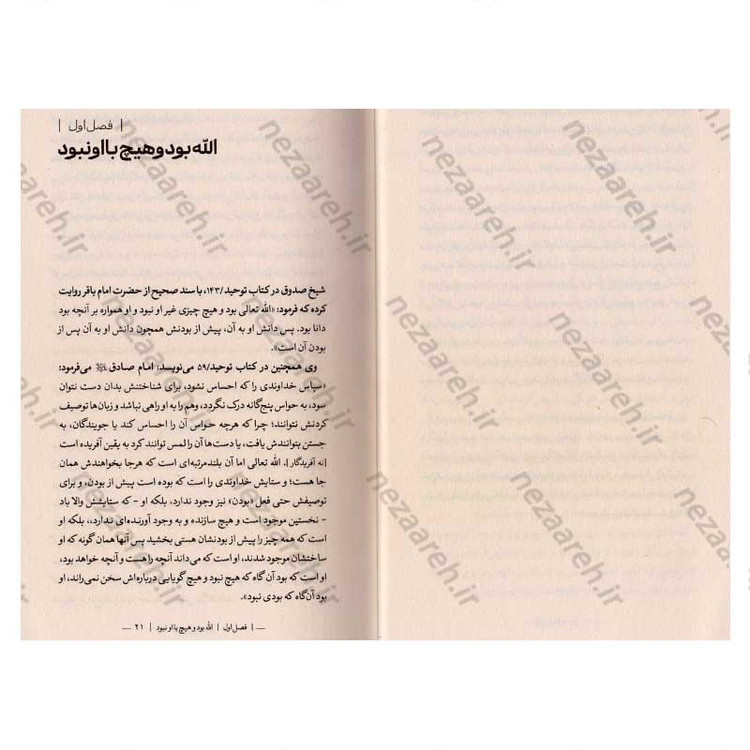 | فصل اول |
الله بود و هیچ با او نبود
شیخ صدوق در کتاب توحید/۱۴۳، با سند صحیح از حضرت امام باقر روایت
کرده که فرمود: «الله تعالی بود و هیچ چیزی غیر او نبود و او همواره بر آنچه بود
دانا بود. پس دانش او به آن، پیش از بودنش همچون دانش او به آن پس از
بودن آن است».
وی همچنین در کتاب توحید/۵۹ می‌نویسد: امام صادق می‌فرمود:
«سپاس خداوندی را که احساس نشود، برای شناختنش بدان دست نتوان
سود، به حواس پنج‌گانه درک نگردد، وهم را به او راهی نباشد و زبان‌ها توصیف
کردنش نتوانند؛ چرا که هرچه حواس آن را احساس کند یا جویندگان، به
جستن بتوانندش یافت، یا دست‌ها آن را لمس توانند کرد به یقین آفریده است
[نه آفریدگار]. الله تعالی اما آن بلندمرتبه‌ای است که هرجا بخواهندش همان
جا هست؛ و ستایش خداوندی را است که بوده است پیش از بودن، و برای
توصیفش حتی فعل «بودن» نیز وجود ندارد، بلکه او - که ستایشش والا باد
- نخستین موجود است و هیچ سازنده و به وجود آورنده‌ای ندارد.، بلکه او
است که همه چیز را پیش از بودنشان هستی بخشید پس آنها همان گونه که او
ساختشان موجود شدند، او است که می‌داند آنچه را هست و آنچه خواهد بود،
او است که بود آن گاه که هیچ نبود و هیچ گویایی درباره‌اش سخن نمی‌راند، او
بود آن‌گاه که بودی نبود».
— | فصل اول | الله بود و هیچ با او نبود | ۲۱ —
nezaareh.ir
nezaareh.ir
nezaareh.ir
nezaareh.ir
nezaareh.ir
nezaareh.ir